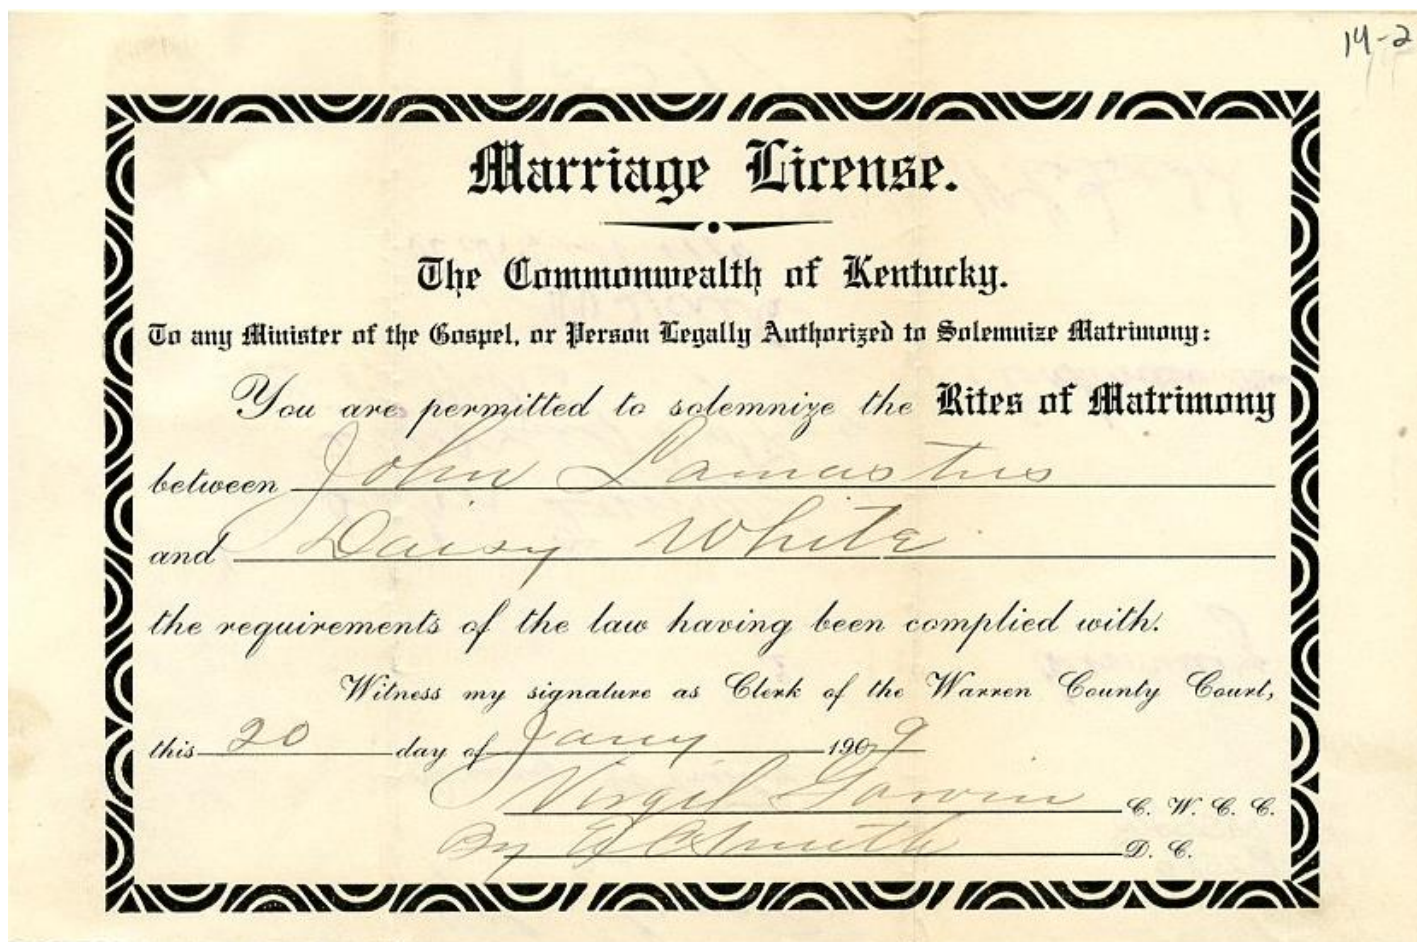 14-2
Marriage License.
The Commonwealth of Kentucky.
To any Minister of the Gospel, or Person Legally Authorized to Solemnize Matrimony:
You are permitted to solemnize the Rites of Matrimony
between John Lamastus
and Daisy White
the requirements of the law having been complied with.
Witness my signature as Clerk of the Warren County Court,
this 20 day of Jany 1909
Virgil Garvin C. W. C. C.
By Smith D. C.